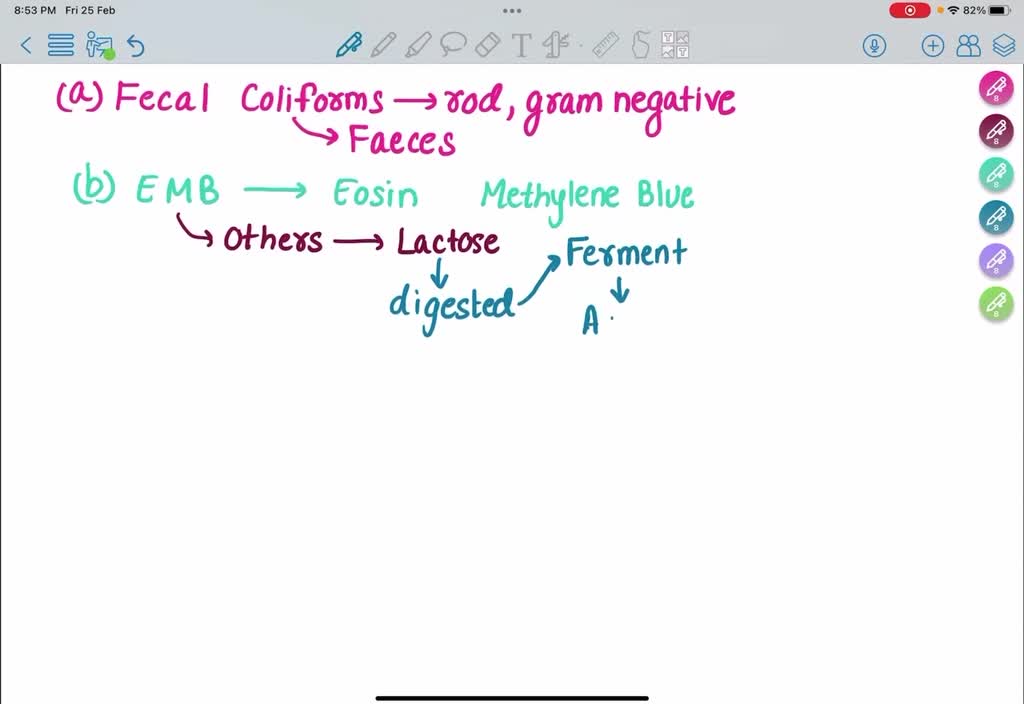 8:53 PM Fri 25 Feb
82%
(a) Fecal Coliforms → rod, gram negative
→ Faeces
(b) EMB → Eosin Methylene Blue
→ Others → Lactose
Ferment
digested
A